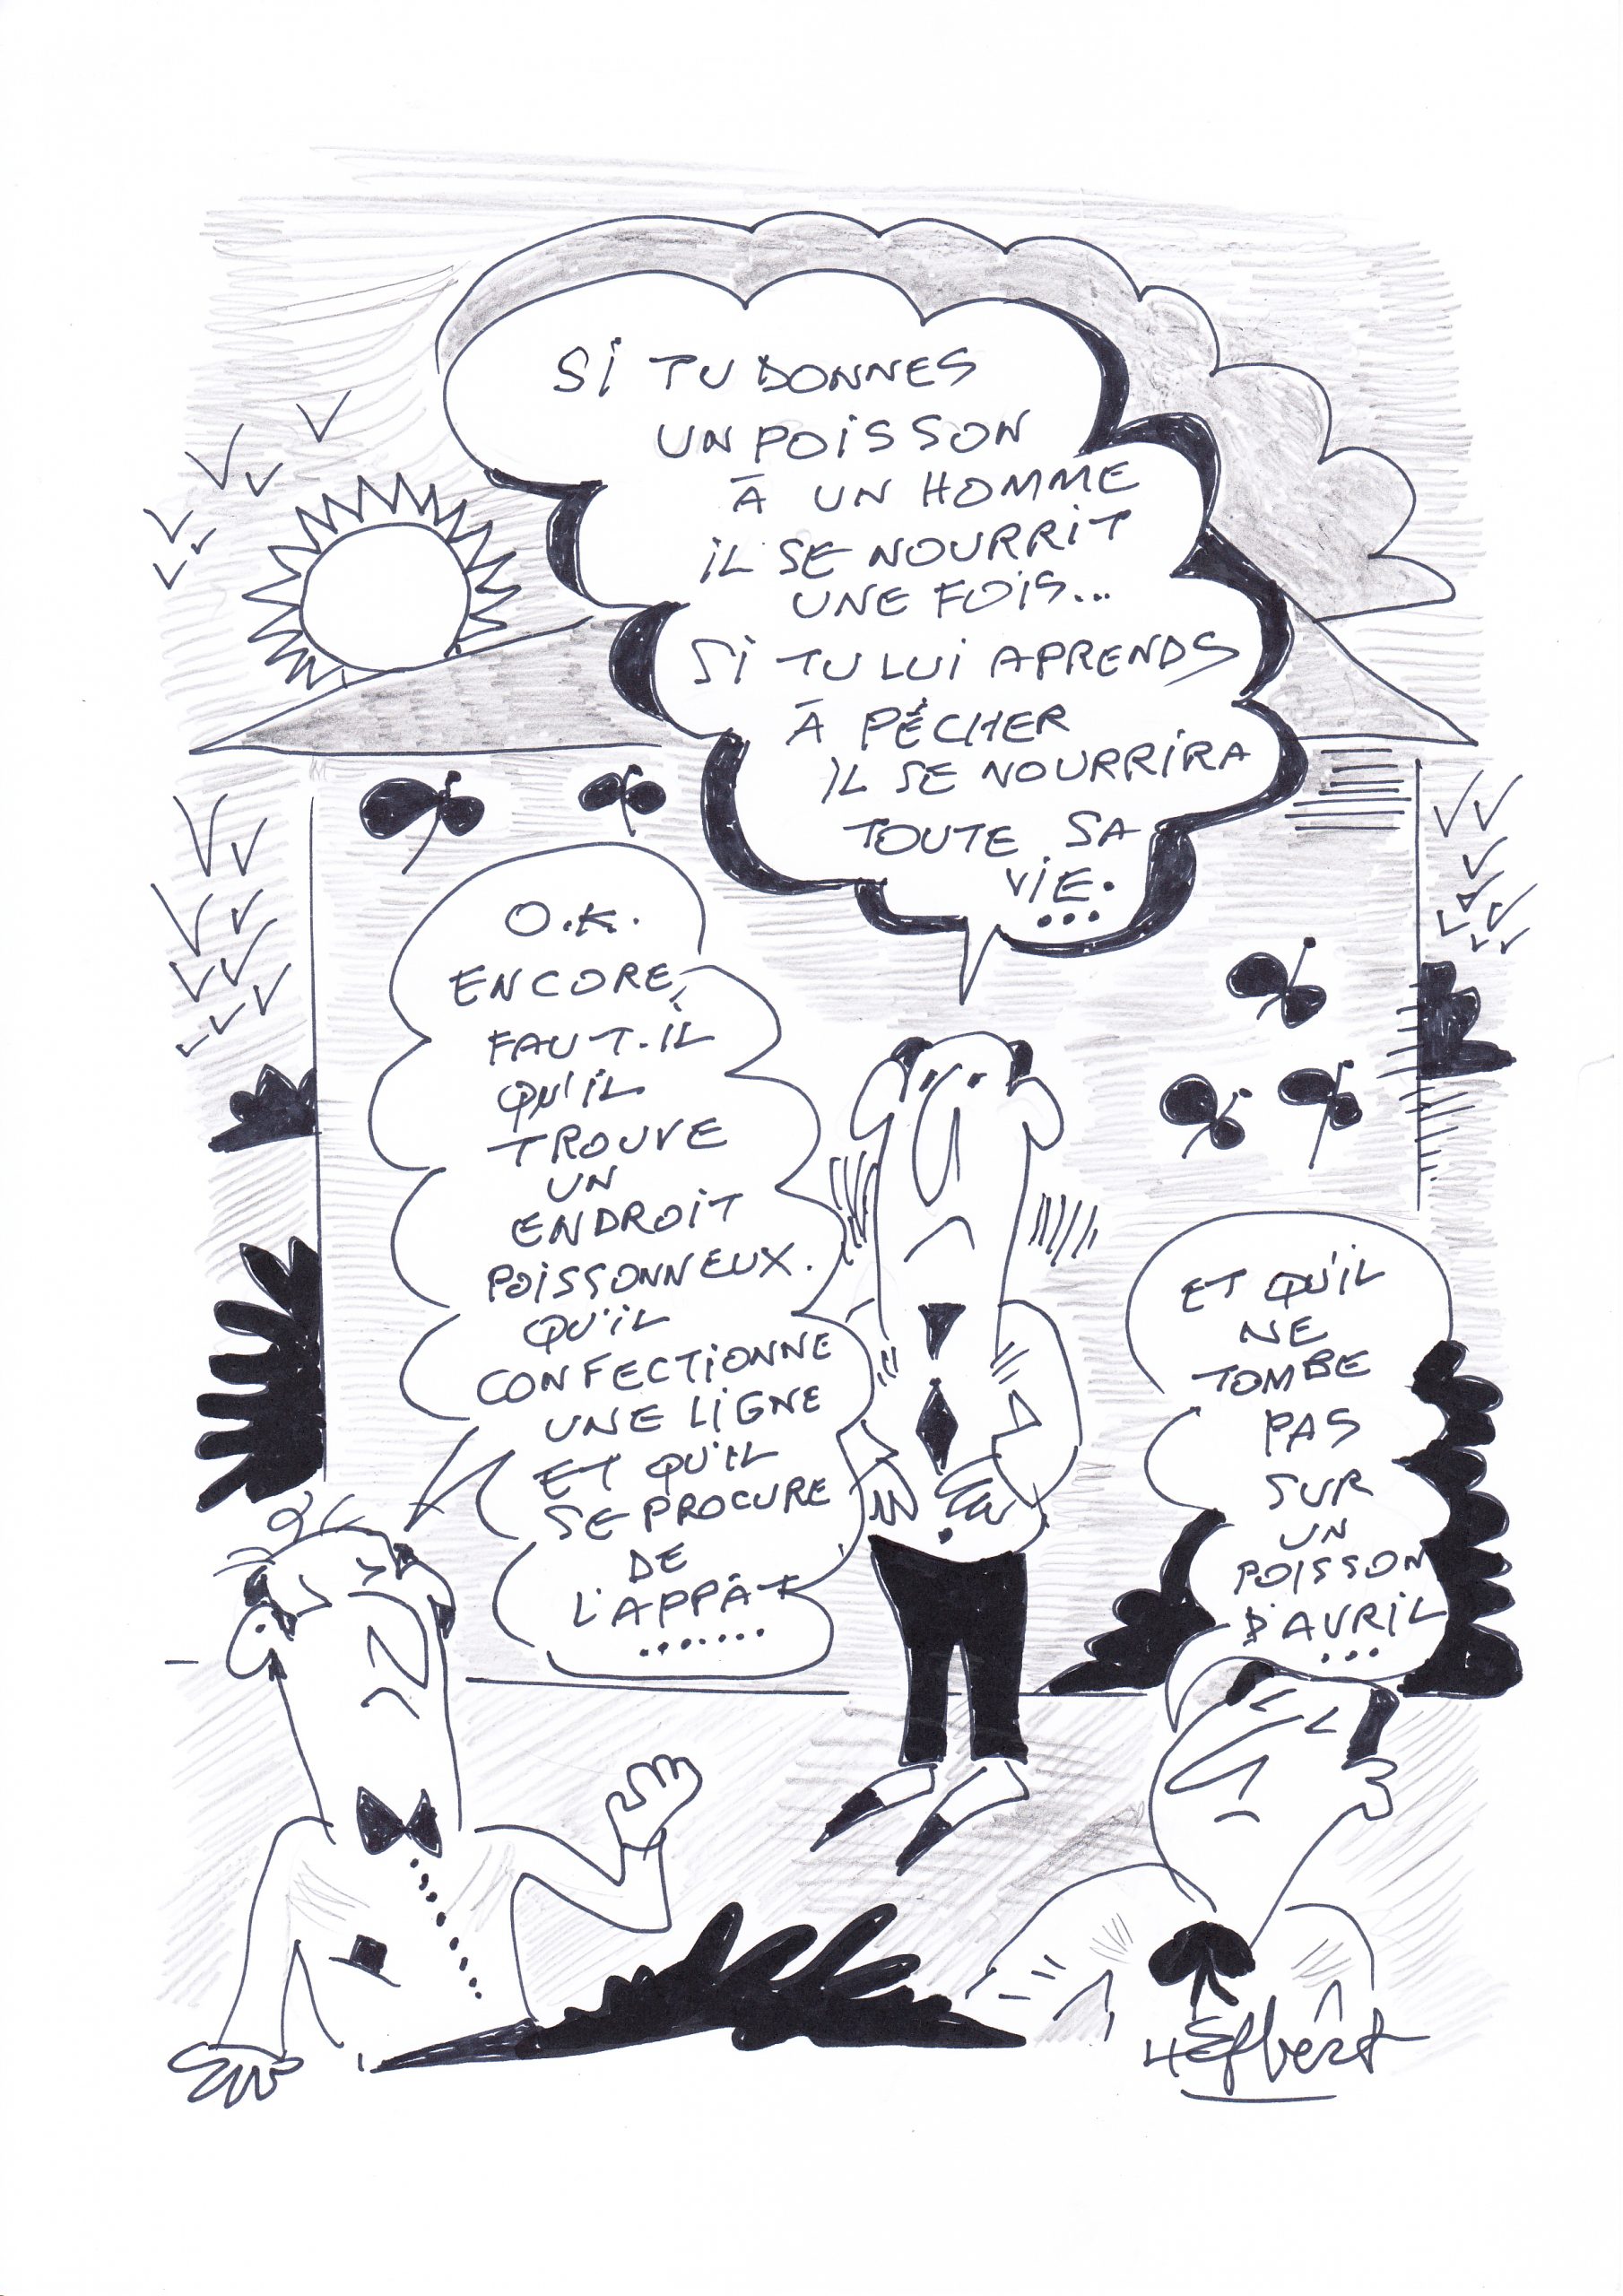 SI TU DONNES
UN POISSON
À UN HOMME
IL SE NOURRIT
UNE FOIS...
SI TU LUI APRENDS
À PÉCHER
IL SE NOURRIRA
TOUTE SA
VIE.
...
O.K.
ENCORE,
FAUT-IL
QU'IL
TROUVE
UN
ENDROIT
POISSONNEUX.
QU'IL
CONFECTIONNE
UNE LIGNE
ET QU'IL
SE PROCURE
DE
L'APPÂT
.......
ET QU'IL
NE
TOMBE
PAS
SUR
UN
POISSON
D'AVRIL
...